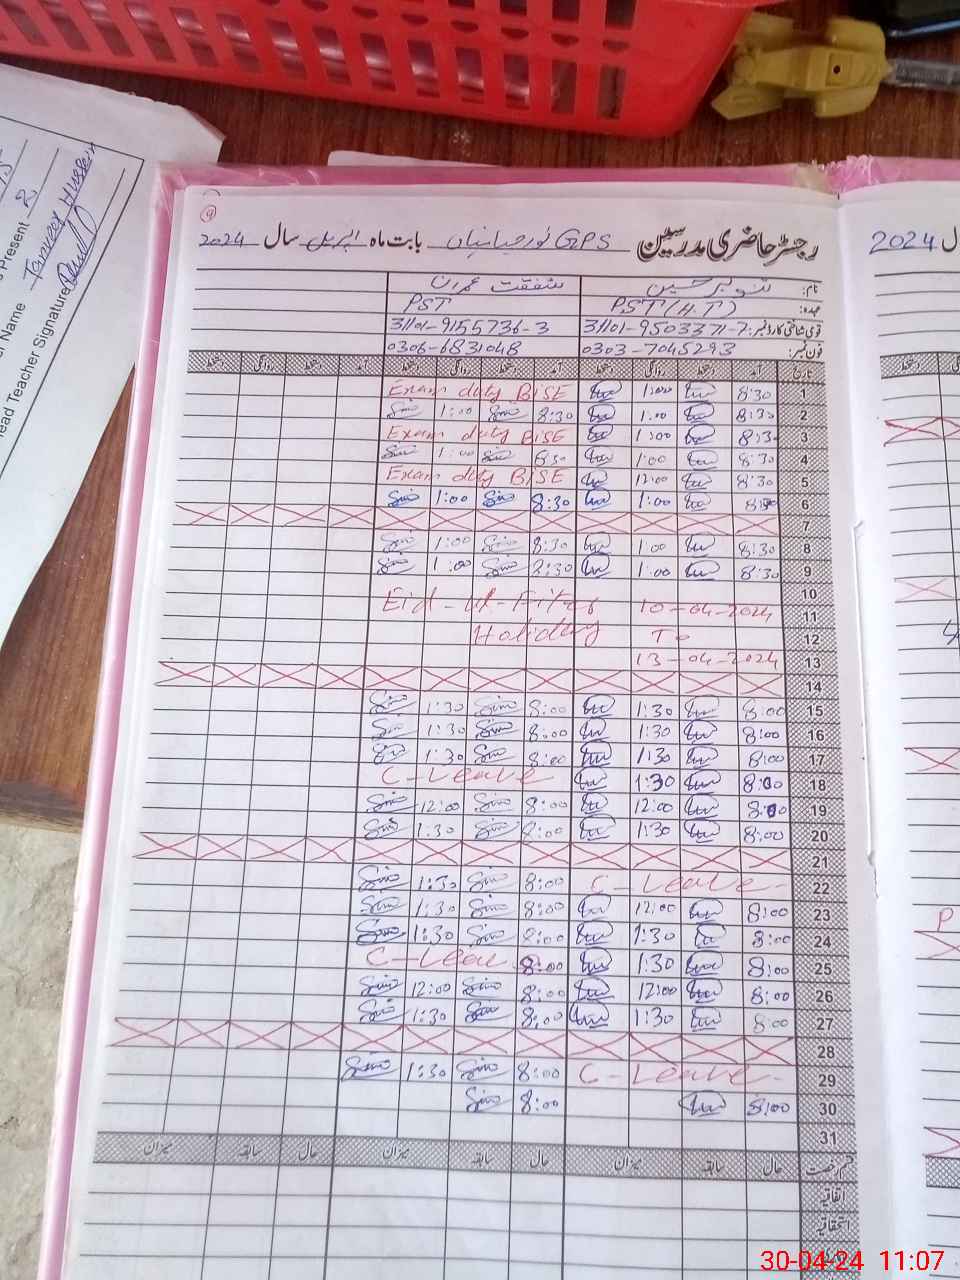 رجسٹر حاضری مدرسین GPS نور جہانیاں بابت ماہ اپریل سال 2024
نام: تنویر حسین شفقت عمران
عہدہ: PST (H.T) PST
قومی شناختی کارڈ نمبر: 31101-9503371-7 31101-9155736-3
فون نمبر: 0303-7045293 0306-6831048
تاریخ آمد دستخط روانگی دستخط آمد دستخط روانگی دستخط آمد دستخط روانگی دستخط
1 8:30 1:00 Exam duty BISE
2 8:30 1:00 8:30 1:00
3 8:30 1:00 Exam duty BISE
4 8:30 1:00 8:30 1:00
5 8:30 12:00 Exam duty BISE
6 8:30 1:00 8:30 1:00
7
8 8:30 1:00 8:30 1:00
9 8:30 1:00 8:30 1:00
10
11 Eid-ul-Fiter 10-04-2024
12 Holiday To
13 13-04-2024
14
15 8:00 1:30 8:00 1:30
16 8:00 1:30 8:00 1:30
17 8:00 1:30 8:00 1:30
18 8:00 1:30 C-Leave
19 8:00 12:00 8:00 12:00
20 8:00 1:30 8:00 1:30
21
22 C-Leave 8:00 1:30
23 8:00 12:00 8:00 1:30
24 8:00 1:30 8:00 1:30
25 8:00 1:30 C-Leave 8:00
26 8:00 12:00 8:00 12:00
27 8:00 1:30 8:00 1:30
28
29 C-Leave 8:00 1:30
30 8:00 8:00
31
قسم رخصت حال سابقہ میزان حال سابقہ میزان حال سابقہ میزان
اتفاقیہ
استحقاقیہ
9
Present 2
Name Tanveer Hussain
Head Teacher Signature
2024
P
30-04-24 11:07